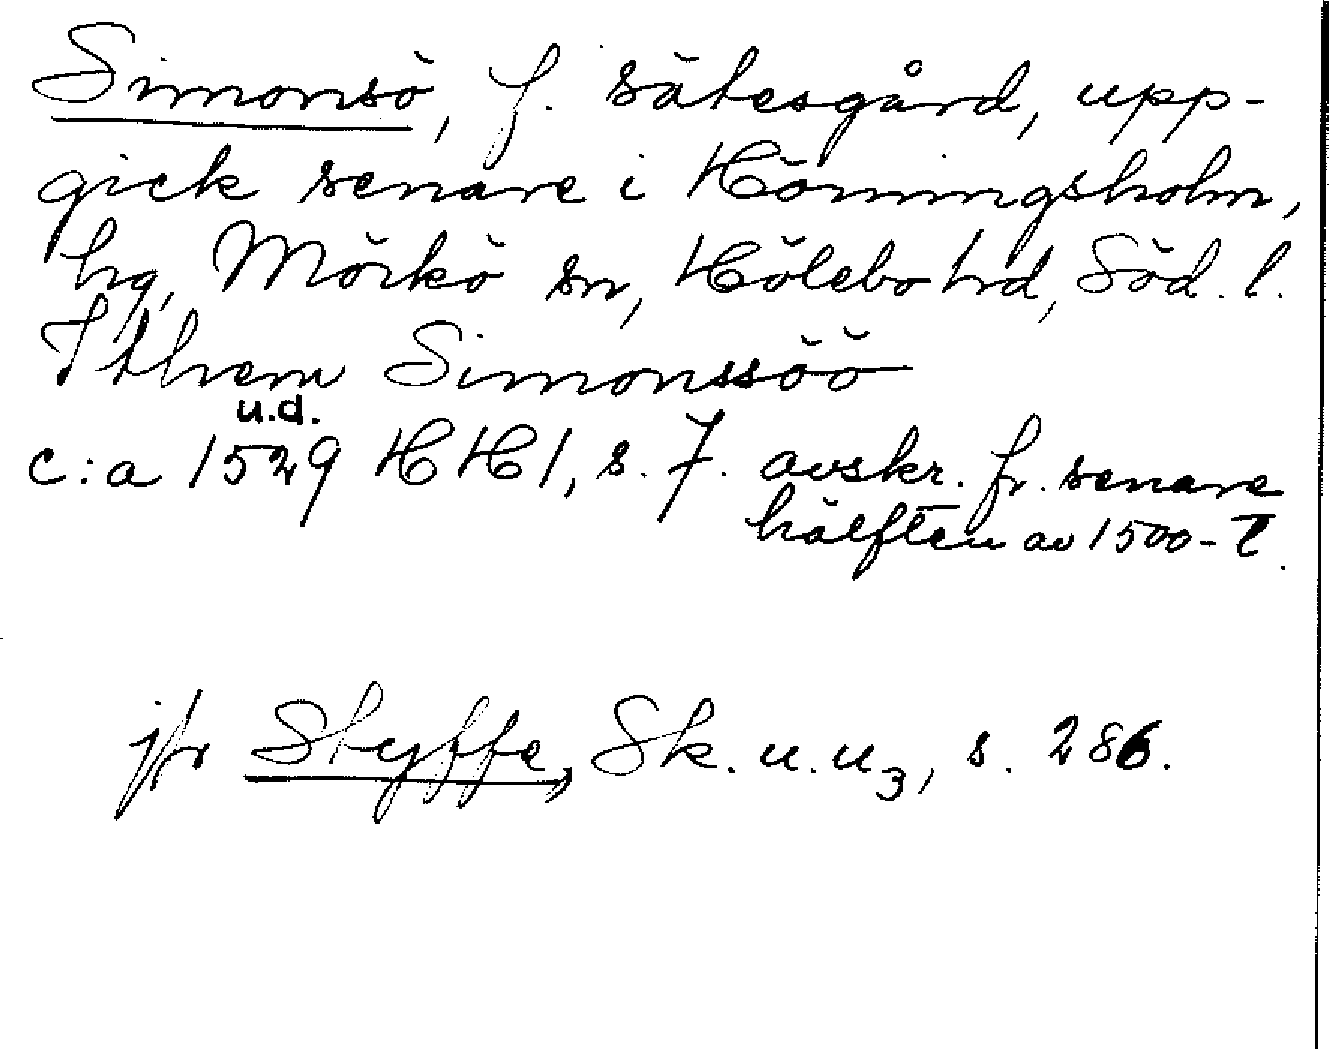 Simonsö, f. sätesgård, upp-
gick senare i Hörningsholm,
hg, Mörkö sn, Hölebo hd, Söd. l.
J them Simonssöö
u.d.
c:a 1529 HH1, s. 7. avskr. fr. senare
hälften av 1500-t.
jfr Styffe, Sk. u. u3, s. 286.